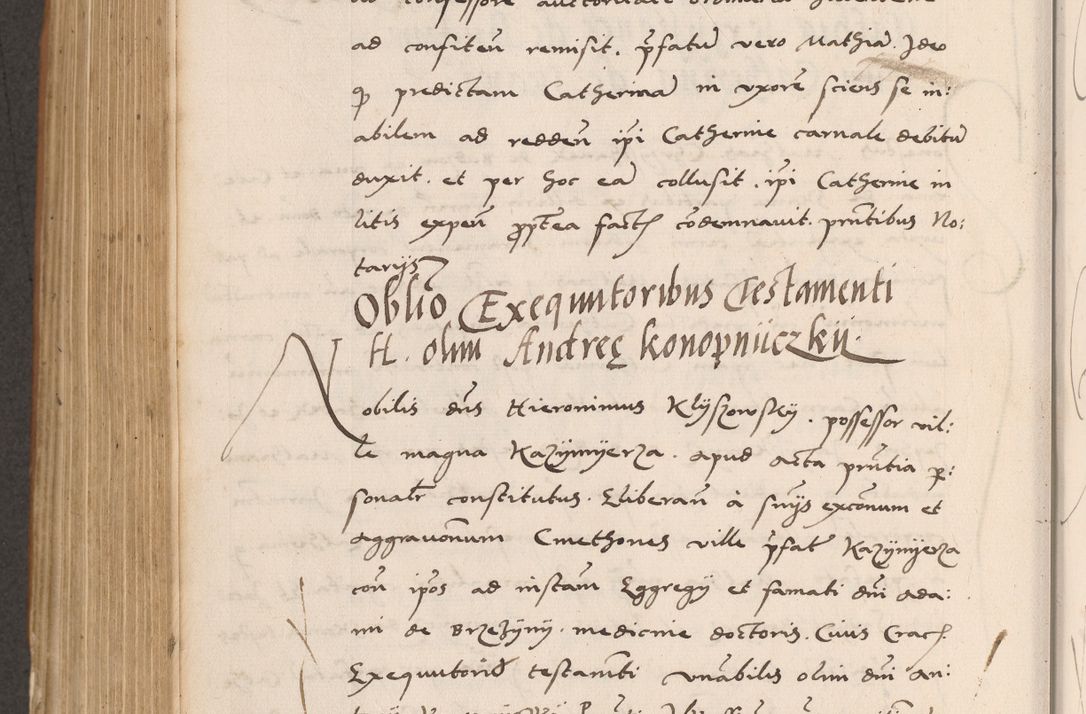 confessore auctoritate ordinaria
ad confiteñ remisit. p̃fatũ vero Mathiã. Ideo
ꝙ predictam Catherinã in vxorẽ sciens se in:
abilem ad reddeñ ip̃i Catherine carnale debitũ
duxit. et per hoc eã collusit. ip̃i Catherine in
litis expeñ ꝓp̃tea fact̃ cõdemnauit. pñtibus No:
tarijs
Oblĩo Exequutoribus Testamenti
H. olim Andreę konopniiczkii.
Nobilis dñs Hieronimus Klyszowsky. possessor vil:
le magna Kazymyerza. apud acta pñtia ꝑ:
sonalr̃ constitutus. Lliberañ à snijs excõnum et
aggrauõnum Cmethones ville p̃fat̃ Kazymyerza
coñ ip̃os ad instañ Eggregij et famati dñi Ada:
mi de Brzezyny. medicine doctoris. Ciuis Crac̃.
Exequutoris testamẽti vnãbilis olim dñi An: